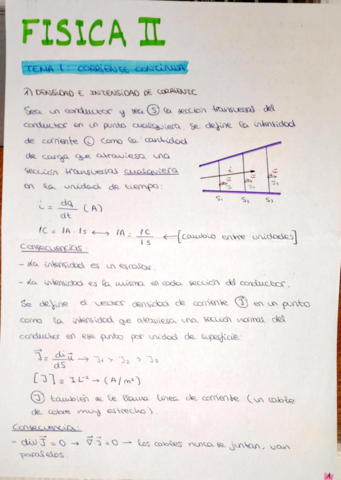 FISICA II
TEMA 1: CORRIENTE CONTINUA
1) DENSIDAD E INTENSIDAD DE CORRIENTE
Sea un conductor y sea (S) la sección transversal del
conductor en un punto cualquiera. Se define la intensidad
de corriente (i) como la cantidad
de carga que atraviesa una
sección transversal cualquiera
en la unidad de tiempo:
i
S₁ S₂ S₃
i = dq/dt (A)
1C = 1A · 1s ⟷ 1A = 1C/1s ← [cambio entre unidades]
Consecuencias:
- La intensidad es un escalar.
- La intensidad es la misma en cada sección del conductor.
Se define el vector densidad de corriente (J) en un punto
como la intensidad que atraviesa una sección normal del
conductor en ese punto por unidad de superficie:
J⃗ = di/dS u⃗ → J₁ > J₂ > J₃
[J] = I L⁻² → (A/m²)
(J) también se le llama línea de corriente (un cable
de cobre muy estrecho).
Consecuencia:
- div J⃗ = 0 → ∇⃗ · J⃗ = 0 → Los cables nunca se juntan, van
paralelos.
1